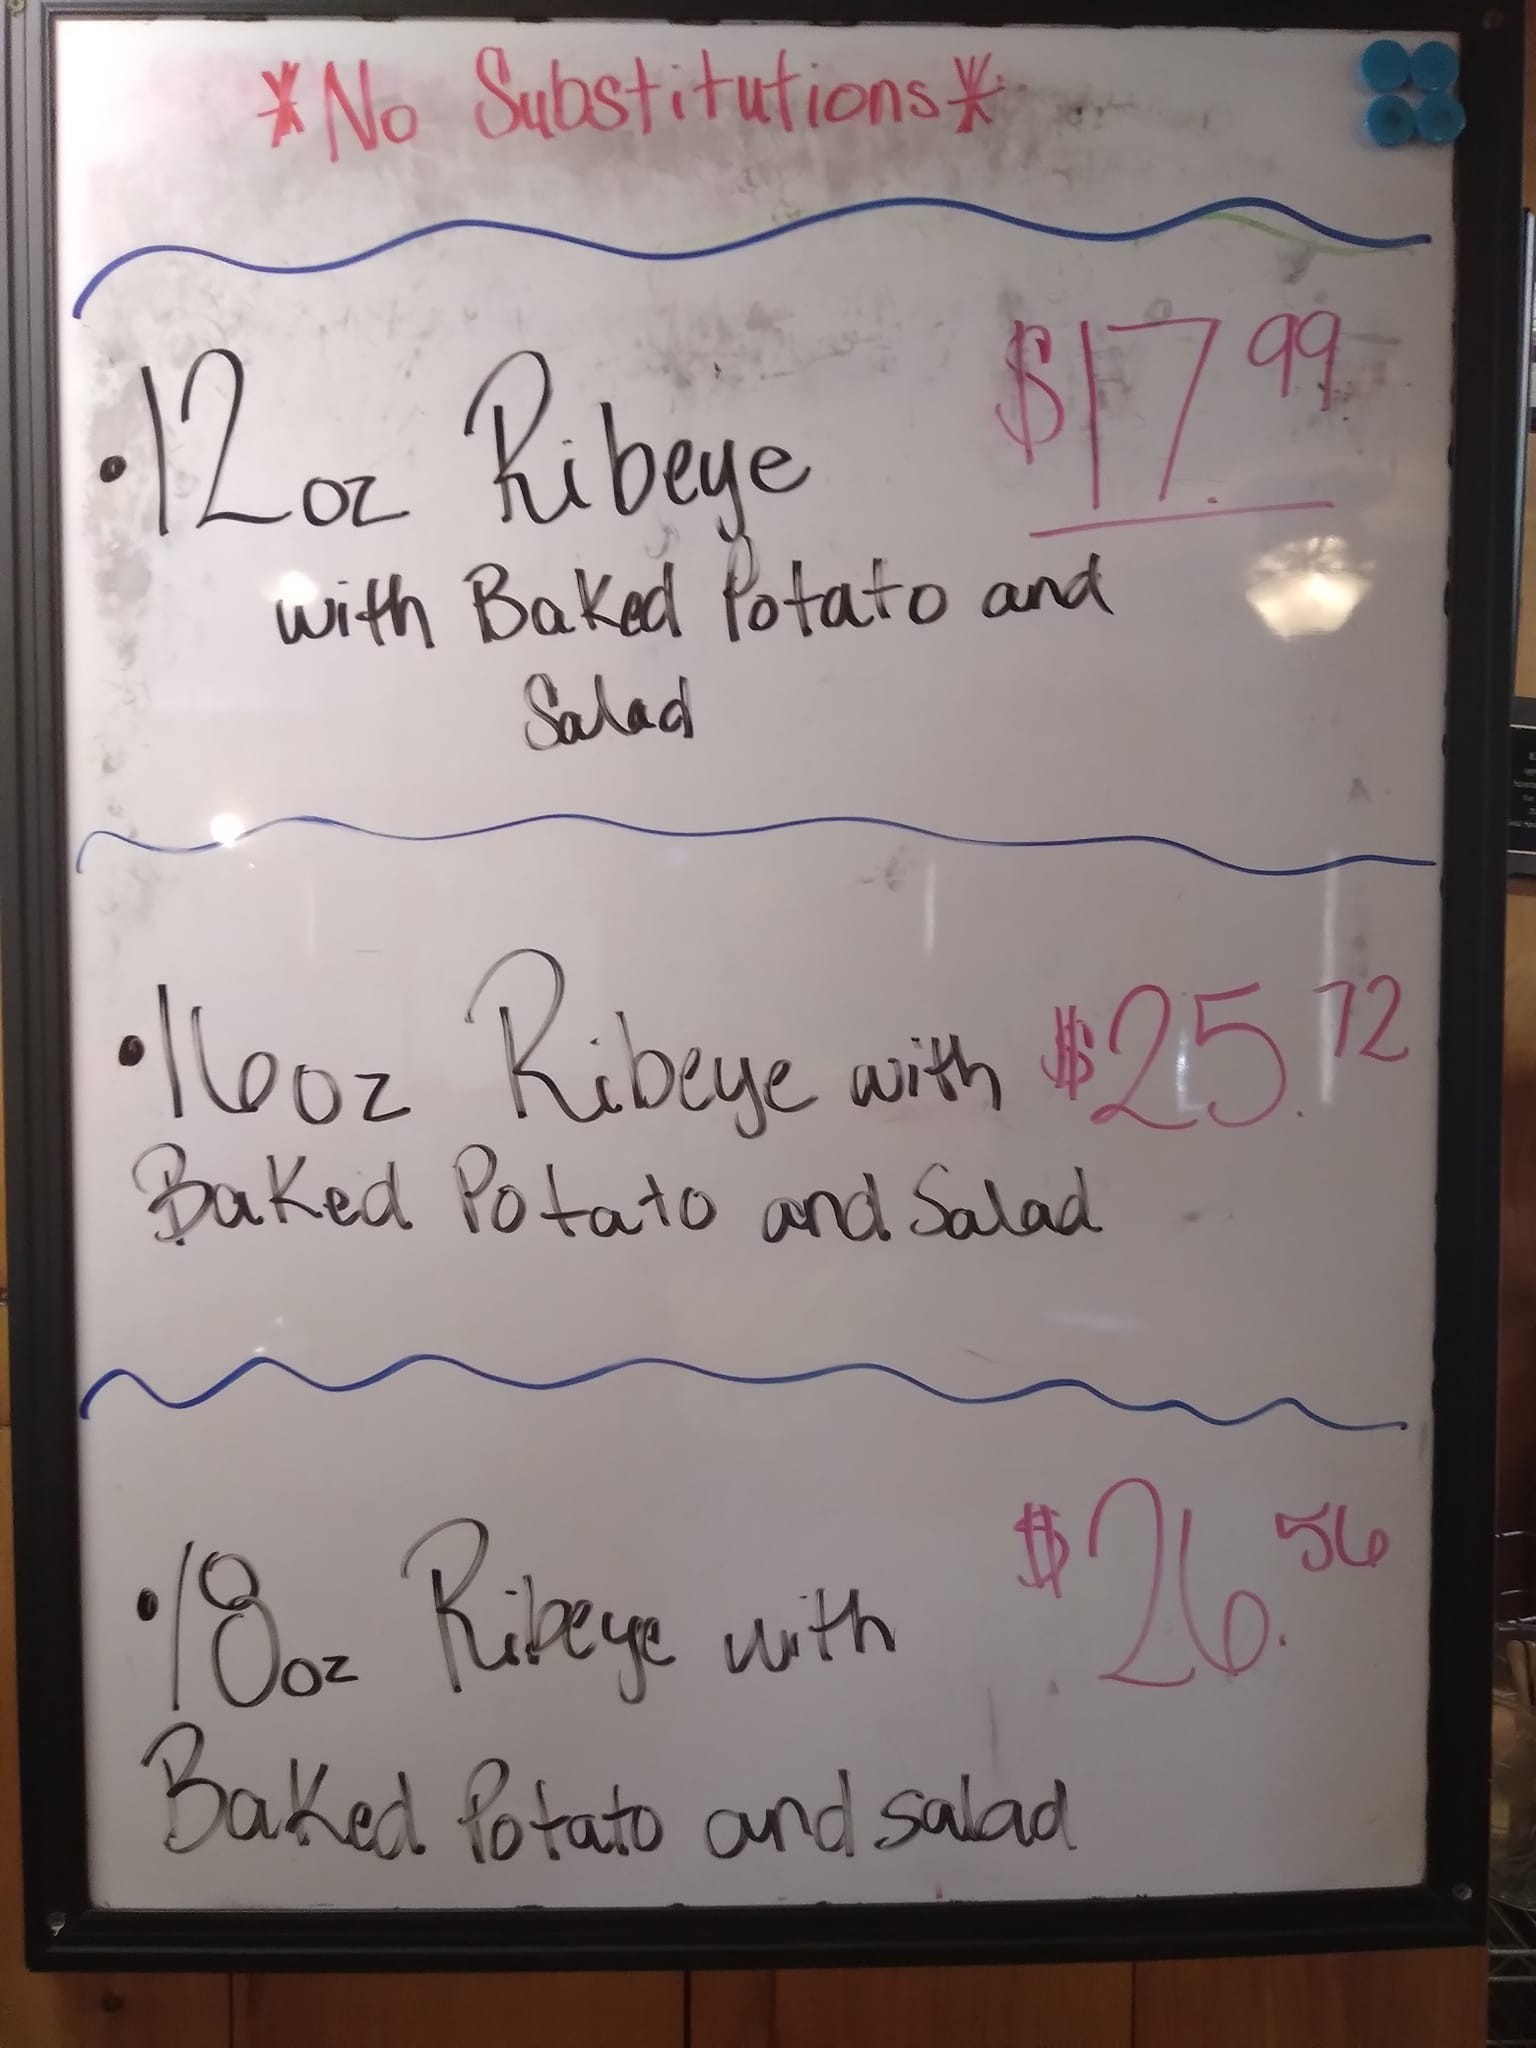 *No Substitutions*
•12oz Ribeye $17.99
with Baked Potato and
Salad
•16oz Ribeye with $25.72
Baked Potato and Salad
•18oz Ribeye with $26.56
Baked Potato and salad